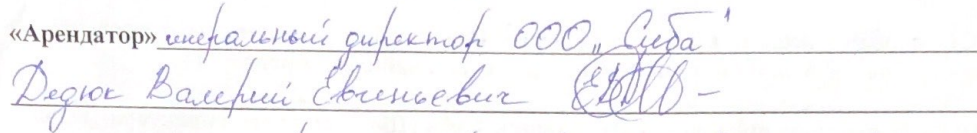 «Арендатор» генеральный директор ООО „Сиба"
Дедюк Валерий Евгеньевич